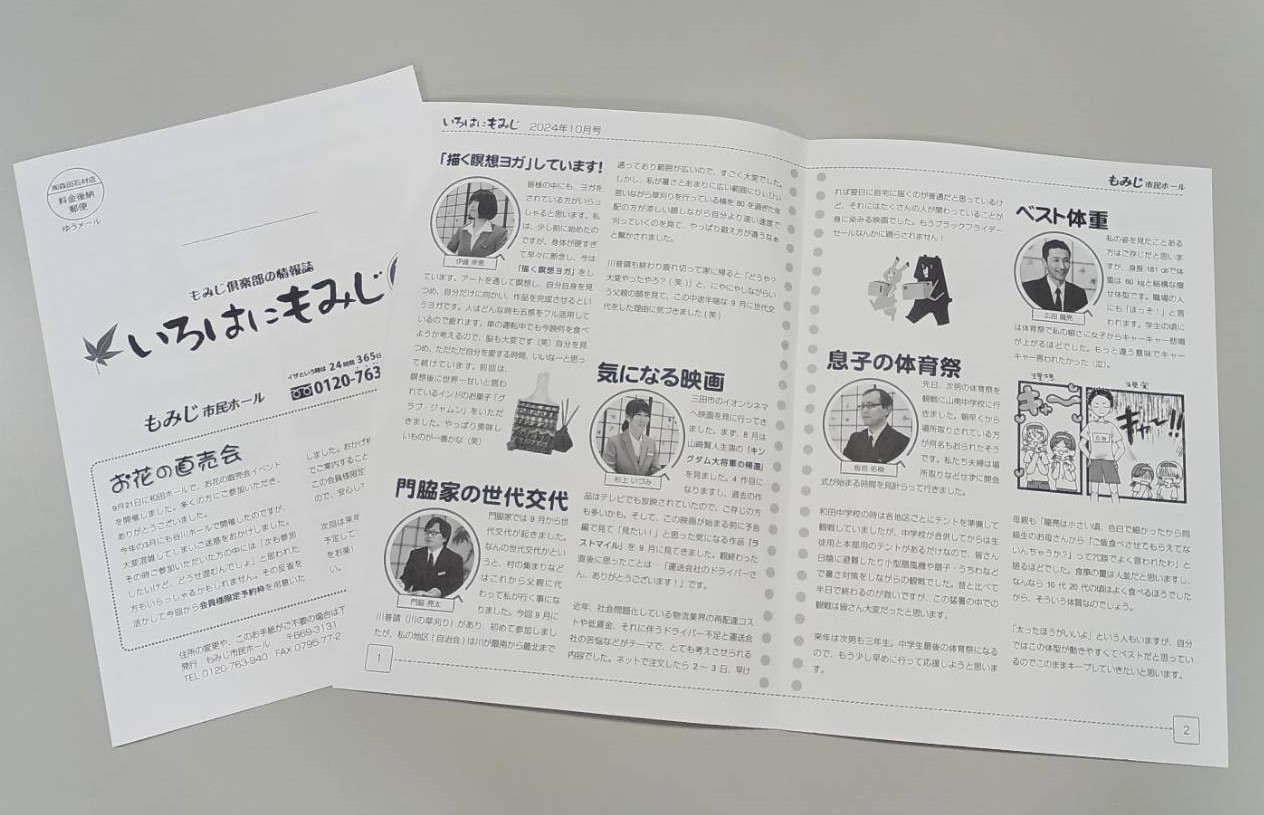 ㈱森田石材店
料金後納
郵便
ゆうメール
もみじ倶楽部の情報誌
いろはにもみじ
イザという時は 24時間 365日
0120-763
もみじ 市民ホール
お花の直売会
9月21日に和田ホールで、お花の直売会イベント
を開催しました。多くの方にご参加いただき、
ありがとうございました。
今年の3月にも谷川ホールで開催したのですが、
大変混雑してしまいご迷惑をおかけしました。
その時ご参加いただいた方の中には「次も参加
したいけど、どうせ混むんでしょ」と思われた
方もいらっしゃるかもしれません。その反省を
活かして今回から会員様限定予約枠を用意いた
しました。おかげ
でご案内すること
この会員様限定
ので、安心して
次回は来年
予定して
をお楽し
い。
住所の変更や、このお手紙がご不要の場合は下
発行 もみじ市民ホール 〒669-3131
TEL 0120-763-940 FAX 0795-77-2
いろはにもみじ 2024年10月号
「描く瞑想ヨガ」しています!
皆様の中にも、ヨガを
されている方がいらっ
しゃると思います。私
は、少し前に始めたの
ですが、身体が硬すぎ
て早々に断念し、今は
「描く瞑想ヨガ」をし
ています。アートを通して瞑想し、自分自身を見
つめ、自分だけに向かい、作品を完成させるとい
うヨガです。人はどんな時も五感をフル活用して
いるので疲れます。車の運転中でも今晩何を食べ
ようか考えるので、脳も大変です(笑)自分を見
つめ、ただただ自分を愛する時間、いいなーと思っ
て続けています。前回は、
瞑想後に世界一甘いと言わ
れているインドのお菓子「グ
ラブ・ジャムン」をいただ
きました。やっぱり美味し
いものが一番かな(笑)
門脇家の世代交代
門脇家では9月から世
代交代が起きました。
なんの世代交代かとい
うと、村の集まりなど
はこれから父親に代
わって私が行く事にな
りました。今回9月に
門脇 亮太
川普請(川の草刈り)があり、初めて参加しまし
たが、私の地区(自治会)は川が最南から最北まで
1
通っており範囲が広いので、すごく大変でした。
しかし、私が暑さとあまりに広い範囲にひいひい
言いながら草刈を行っている横を80を過ぎた年
配の方が涼しい顔しながら自分より速い速度で
刈っていくのを見て、やっぱり鍛え方が違うなぁ
と驚かされました。
川普請も終わり疲れ切って家に帰ると「どうや?
大変やったやろ?(笑)」と、にやにやしながらい
う父親の顔を見て、この中途半端な9月に世代交
代をした理由に気づきました(笑)
気になる映画
三田市のイオンシネマ
へ映画を見に行ってき
ました。まず、8月は
山崎賢人主演の「キン
グダム大将軍の帰還」
を見ました。4作目に
なりますし、過去の作
杉上 いづみ
品はテレビでも放映されていたので、ご存じの方
も多いかも。そして、この映画が始まる前に予告
編で見て「見たい!」と思った気になる作品「ラ
ストマイル」を9月に見てきました。観終わった
直後に思ったことは…「運送会社のドライバーさ
ん、ありがとうございます!」です。
近年、社会問題化している物流業界の再配達コス
トや低賃金、それに伴うドライバー不足と運送会
社の苦悩などがテーマで、とても考えさせられる
内容でした。ネットで注文したら2～3日、早け
もみじ 市民ホール
れば翌日に自宅に届くのが普通だと思っているけ
ど、それにはたくさんの人が関わっていることが
身に染みる映画でした。もうブラックフライデー
セールなんかに踊らされません!
息子の体育祭
先日、次男の体育祭を
観戦に山南中学校に行
きました。朝早くから
場所取りされている方
が何名もおられたそう
です。私たち夫婦は場
所取りなどせずに開会
式が始まる時間を見計らって行きました。
和田中学校の時は各地区ごとにテントを準備して
観戦していましたが、中学校が合併してからは生
徒用と本部用のテントがあるだけなので、皆さん
日陰に避難したり小型扇風機や扇子・うちわなど
で暑さ対策をしながらの観戦でした。昔と比べて
半日で終わるのが救いですが、この猛暑の中での
観戦は皆さん大変だったと思います。
来年は次男も三年生。中学生最後の体育祭になる
ので、もう少し早めに行って応援しようと思いま
す。
ベスト体重
私の姿を見たことある
方はご存じだと思いま
すが、身長181cmで体
重は60kgと結構な痩
せ体型です。職場の人
にも「ほっそ!」と言
われます。学生の頃に
広田 龍亮
は体育祭で私の細さに女子からキャーキャー悲鳴
が上がるほどでした。もっと違う意味でキャー
キャー言われたかった(泣)。
理想
キャ〜
現実
広田
キャー!!
母親も「龍亮は小さい頃、色白で細かったから同
級生のお母さんから「ご飯食べさせてもらえてな
いんちゃうか?」って冗談でよく言われたわ」と
語るほどでした。食事の量は人並だと思いますし、
なんなら10代20代の頃はよく食べるほうでした
から、そういう体質なのでしょう。
「太ったほうがいいよ」という人もいますが、自分
ではこの体型が動きやすくてベストだと思ってい
るのでこのままキープしていきたいと思います。
2